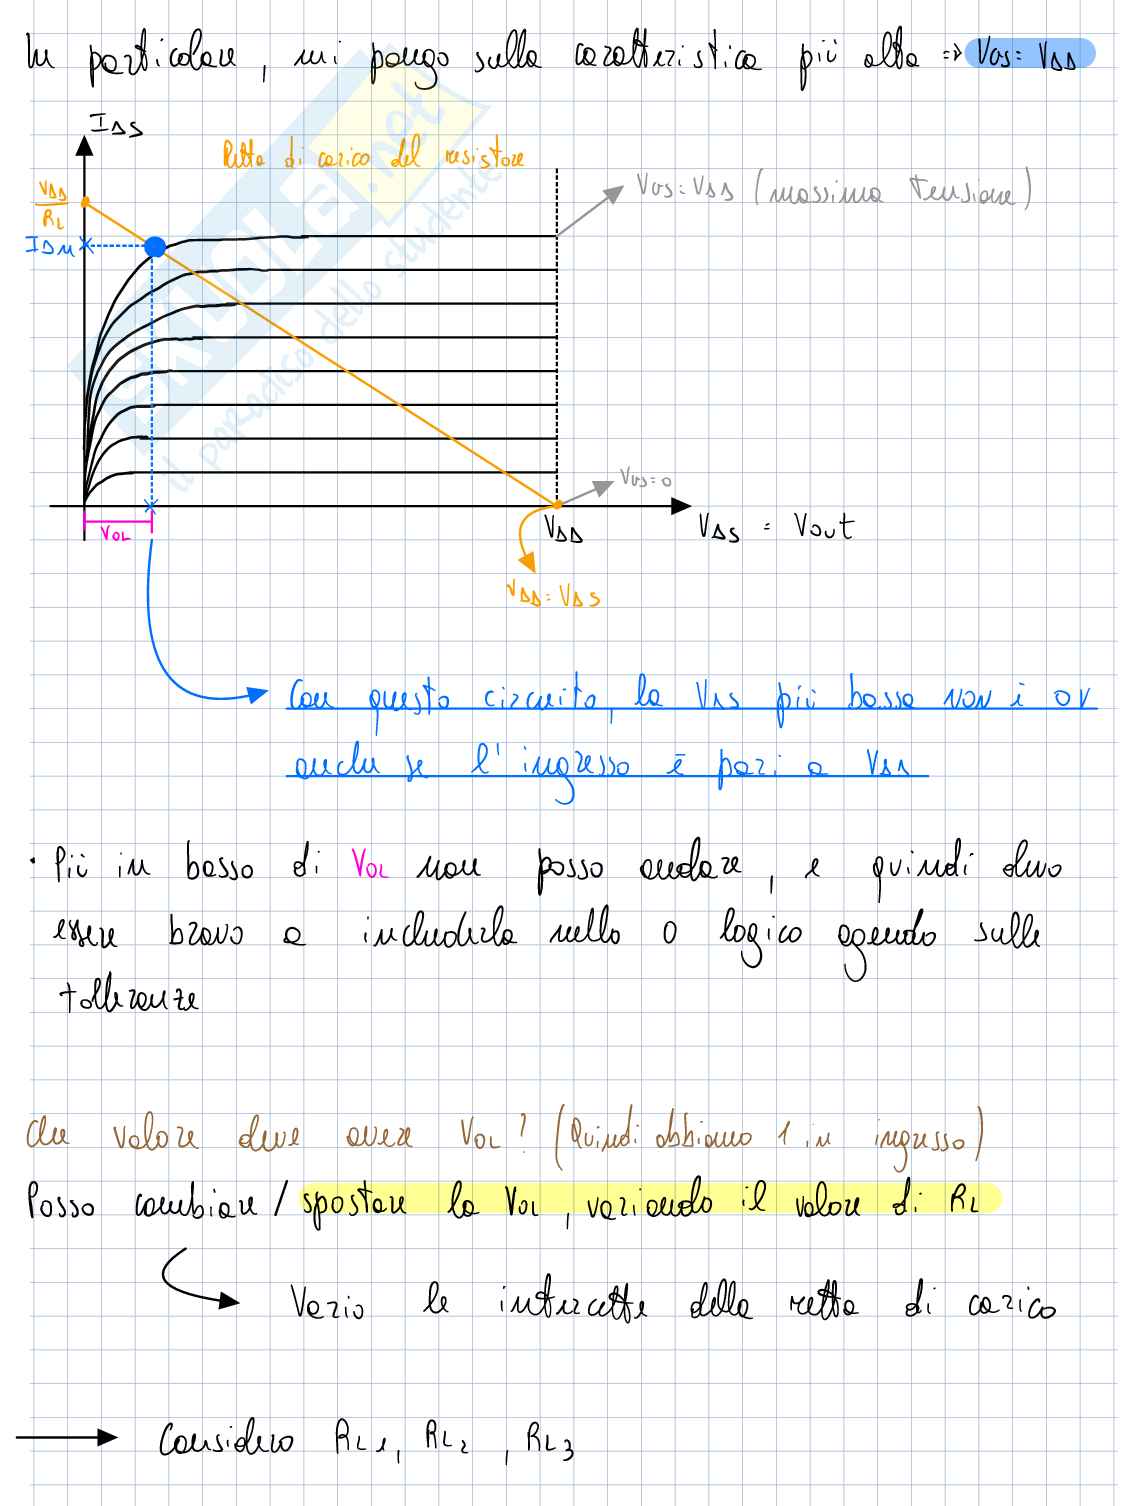 In particolare, mi pongo sulla caratteristica più alta => VGS = VDD
IDS
Retta di carico del resistore
VGS = VDD (massima tensione)
VDD
RL
IDM
VGS = 0
VOL
VDD
VDS = Vout
VDD = VDS
Con questo circuito, la VDS più bassa NON è 0V
anche se l'ingresso è pari a VDD
· Più in basso di VOL non posso andare, e quindi devo
essere bravo a includerla nello 0 logico agendo sulle
tolleranze
Che valore deve avere VOL? (Quindi abbiamo 1 in ingresso)
Posso cambiare / spostare la VOL, variando il valore di RL
Vario le intercette della retta di carico
Considero RL1, RL2, RL3
SKUOLA.net
il paradiso dello studente